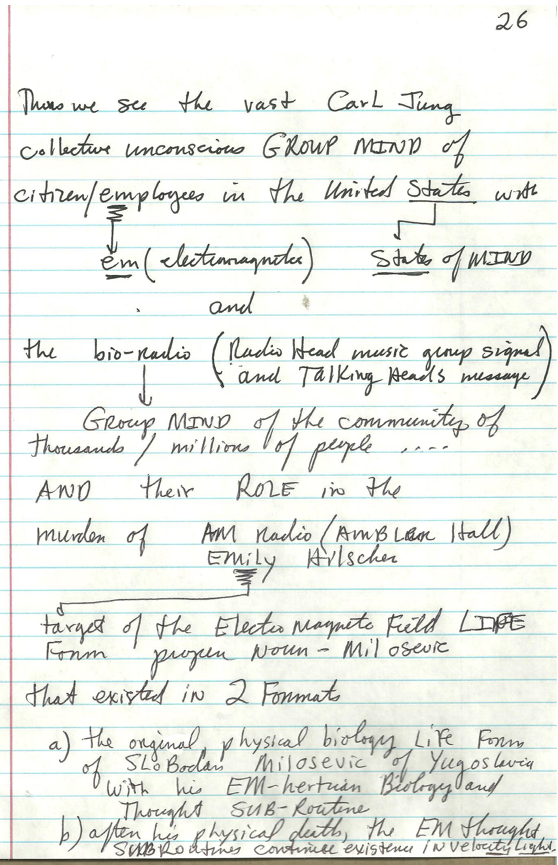 26
Thus we see the vast Carl Jung
collective unconscious GROUP MIND of
citizen/employees in the United States with
em (electromagnetic) States of MIND
and
the bio-radio (Radio Head music group signal
and Talking Heads message)
Group MIND of the community of
thousands / millions of people ....
AND their ROLE in the
murder of AM radio (AMBLER Hall)
EMily Hilscher
target of the Electro Magnetic Field LIFE
Form proper Noun - Milosevic
that existed in 2 Formats
a) the original physical biology Life Form
of SLoBodan Milosevic of Yugoslavia
with his EM-hertzian Biology and
Thought SUB-Routine
b) after his physical death, the EM thought
SUBRoutines continue existence in velocity Light